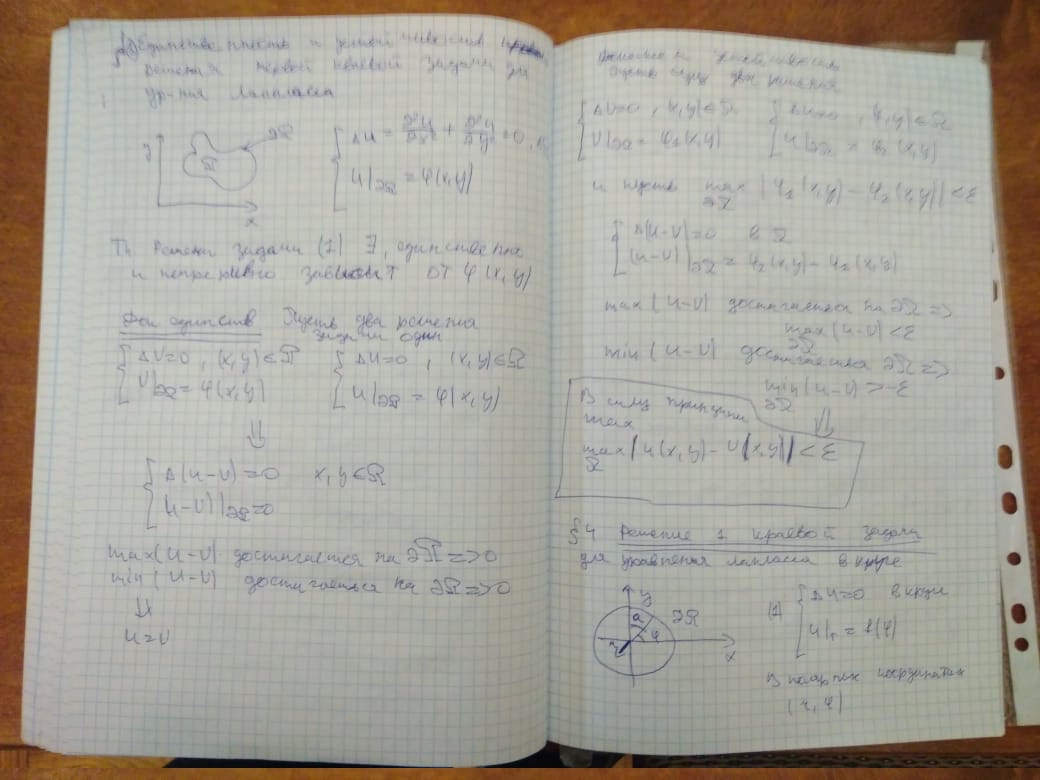 Единственность и
решения первой краевой задачи для
ур-ния Лапласса
y
∂Ω
Ω
x
{ ΔU = ∂²U/∂x² + ∂²U/∂y² = 0
U|∂Ω = φ(x,y)
Th. Решение задачи (1) ∃, единственно
и непрерывно зависит от φ(x,y)
единств Пусть два решения
задачи один
{ ΔV=0, (x,y)∈Ω
V|∂Ω = φ(x,y)
{ ΔU=0, (x,y)∈Ω
U|∂Ω = φ(x,y)
⇓
{ Δ(U-V)=0 x,y∈Ω
(U-V)|∂Ω=0
max(U-V) достигается на ∂Ω => 0
min(U-V) достигается на ∂Ω => 0
⇓
U=V
два решения
{ ΔU=0, (x,y)∈Ω
V|∂Ω = φ₁(x,y)
{ ΔU=0, (x,y)∈Ω
U|∂Ω = φ₂(x,y)
и пусть max |φ₂(x,y) - φ₂(x,y)| < ε
∂Ω
{ Δ(U-V)=0 в Ω
(U-V)|∂Ω = φ₂(x,y) - φ₂(x,y)
max (U-V) достигается на ∂Ω =>
max(U-V) < ε
∂Ω
min (U-V) достигается ∂Ω =>
min(U-V) > -ε
∂Ω
⇓
В силу принципа
max
max |U(x,y) - V(x,y)| < ε
Ω
§4 Решение 1 краевой задачи
для уравнения Лапласса в круге
y
∂Ω
a
φ
r
x
(1) { ΔU=0 в круге
U|г = f(φ)
В полярных координатах
(r, φ)